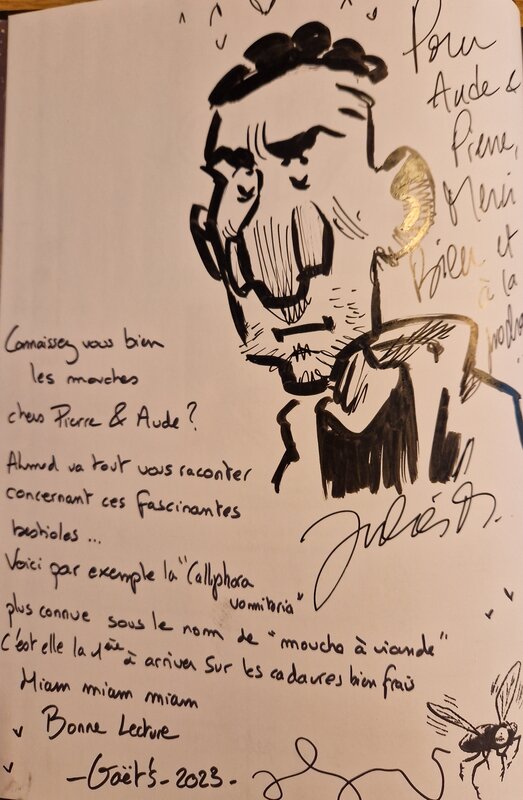 Pour
Aude &
Pierre,
Merci
Bien et
à la
procha
Connaissez vous bien
les mouches
chers Pierre & Aude ?
Ahmed va tout vous raconter
concernant ces fascinantes
bestioles ...
Voici par exemple la "Calliphora
vomitoria"
plus connue sous le nom de "mouche à viande"
C'est elle la 1ère à arriver sur les cadavres bien frais
Miam miam miam
Bonne Lecture
- Gaët's - 2023 -